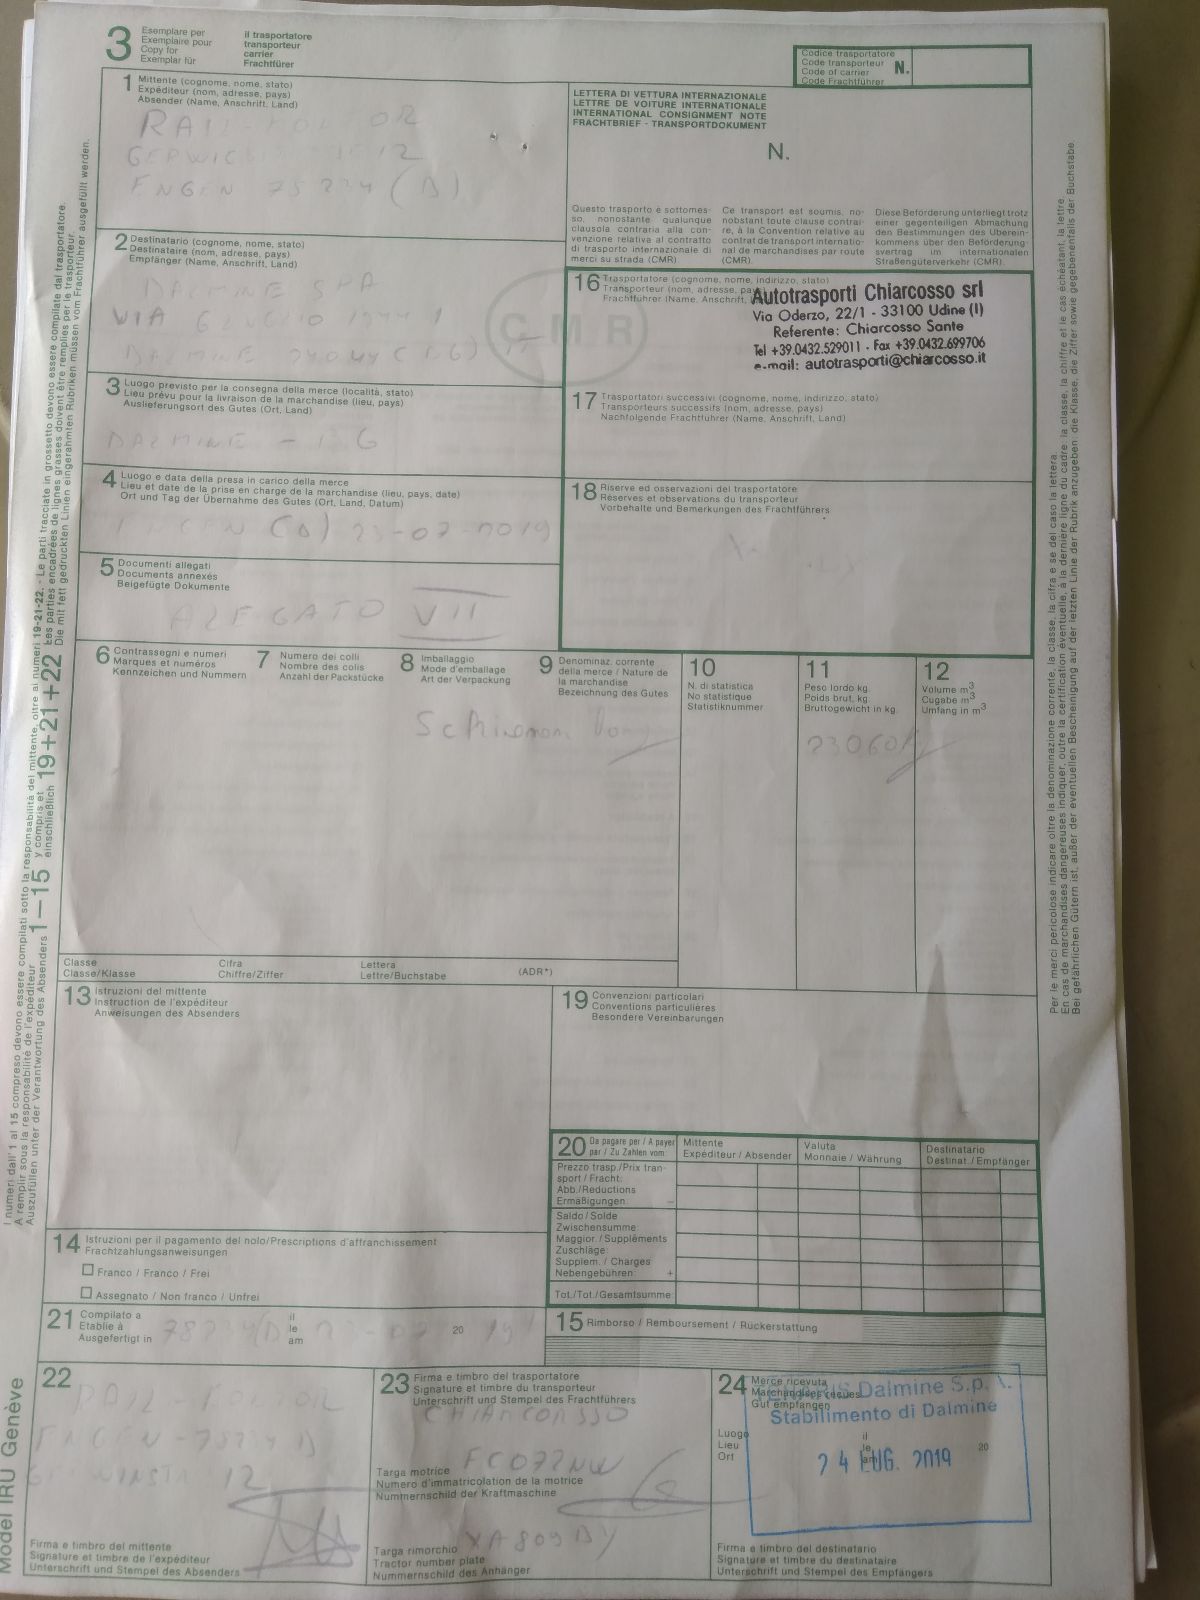 3
Esemplare per
Exemplaire pour
Copy for
Exemplar für
il trasportatore
transporteur
carrier
Frachtfürer
Codice trasportatore
Code transporteur
Code of carrier
Code Frachtführer
N.
1 Mittente (cognome, nome, stato)
Expéditeur (nom, adresse, pays)
Absender (Name, Anschrift, Land)
12
ENGEN 75234 (D)
LETTERA DI VETTURA INTERNAZIONALE
LETTRE DE VOITURE INTERNATIONALE
INTERNATIONAL CONSIGNMENT NOTE
FRACHTBRIEF - TRANSPORTDOKUMENT
N.
Questo trasporto è sottomes-
so, nonostante qualunque
clausola contraria alla con-
venzione relativa al contratto
di trasporto internazionale di
merci su strada (CMR)
Ce transport est soumis, no-
nobstant toute clause contrai-
re, à la Convention relative au
contrat de transport internatio-
nal de marchandises par route
(CMR).
Diese Beforderung unterliegt trotz
einer gegenteiligen Abmachung
den Bestimmungen des Überein-
kommens über den Beförderung-
svertrag im internationalen
Straßengüterverkehr (CMR).
2 Destinatario (cognome, nome, stato)
Destinataire (nom, adresse, pays)
Empfänger (Name, Anschrift, Land)
DALMINE SPA
VIA
DALMINE 24044 (BG)
CMR
16 Trasportatore (cognome, nome, indirizzo, stato)
Transporteur (nom, adresse, pays)
Frachtführer (Name, Anschrift,
Autotrasporti Chiarcosso srl
Via Oderzo, 22/1 - 33100 Udine (I)
Referente: Chiarcosso Sante
Tel +39.0432.529011 - Fax +39.0432.699706
e-mail: autotrasporti@chiarcosso.it
3 Luogo previsto per la consegna della merce (località, stato)
Lieu prévu pour la livraison de la marchandise (lieu, pays)
Auslieferungsort des Gutes (Ort, Land)
DALMINE - BG
17 Trasportatori successivi (cognome, nome, indirizzo, stato)
Transporteurs successifs (nom, adresse, pays)
Nachfolgende Frachtführer (Name, Anschrift, Land)
4 Luogo e data della presa in carico della merce
Lieu et date de la prise en charge de la marchandise (lieu, pays, date)
Ort und Tag der Übernahme des Gutes (Ort, Land, Datum)
(D) 23-07-2019
18 Riserve ed osservazioni del trasportatore
Réserves et observations du transporteur
Vorbehalte und Bemerkungen des Frachtführers
5 Documenti allegati
Documents annexés
Beigefügte Dokumente
ALEGATO VII
6 Contrassegni e numeri
Marques et numéros
Kennzeichen und Nummern
7 Numero dei colli
Nombre des colis
Anzahl der Packstücke
8 Imballaggio
Mode d'emballage
Art der Verpackung
9 Denominaz. corrente
della merce / Nature de
la marchandise
Bezeichnung des Gutes
10
N. di statistica
No statistique
Statistiknummer
11
Peso lordo kg.
Poids brut, kg
Bruttogewicht in kg.
12
Volume m³
Cugabe m³
Umfang in m³
23060
Classe
Classe/Klasse
Cifra
Chiffre/Ziffer
Lettera
Lettre/Buchstabe
(ADR*)
13 Istruzioni del mittente
Instruction de l'expéditeur
Anweisungen des Absenders
19 Convenzioni particolari
Conventions particulières
Besondere Vereinbarungen
20 Da pagare per / A payer
par / Zu Zahlen vom:
Mittente
Expéditeur / Absender
Valuta
Monnaie / Währung
Destinatario
Destinat. / Empfänger
Prezzo trasp./Prix tran-
sport / Fracht:
Abb./Reductions
Ermäßigungen: −
Saldo / Solde
Zwischensumme:
Maggior. / Suppléments
Zuschläge:
Supplem. / Charges
Nebengebühren: +
Tot./Tot./Gesamtsumme:
14 Istruzioni per il pagamento del nolo/Prescriptions d'affranchissement
Frachtzahlungsanweisungen
Franco / Franco / Frei
Assegnato / Non franco / Unfrei
21 Compilato a
Etablie à
Ausgefertigt in
il
le
am
20 19
15 Rimborso / Remboursement / Rückerstattung
22
ENGEN - 75234 D
12
Firma e timbro del mittente
Signature et timbre de l'expéditeur
Unterschrift und Stempel des Absenders
23 Firma e timbro del trasportatore
Signature et timbre du transporteur
Unterschrift und Stempel des Frachtführers
CHIARCOSSO
FC072NW
Targa motrice
Numero d'immatricolation de la motrice
Nummernschild der Kraftmaschine
XA809BY
Targa rimorchio
Tractor number plate
Nummernschild des Anhänger
24 Merce ricevuta
Marchandises reçues
Gut empfangen
Dalmine S.p.A.
Stabilimento di Dalmine
Luogo
Lieu
Ort
il
le
am
20
24 LUG. 2019
Firma e timbro del destinatario
Signature et timbre du destinataire
Unterschrift und Stempel des Empfängers
I numeri dall' 1 al 15 compreso devono essere compilati sotto la responsabilità del mittente, oltre ai numeri 19-21-22. - Le parti tracciate in grossetto devono essere compilate dal trasportatore.
A remplir sous la responsabilité de l'expéditeur 1—15 y compris et 19+21+22 Les parties encadrées de lignes grasses doivent être remplies par le trasporteur.
Auszufüllen unter der Verantwortung des Absenders einschließlich Die mit fett gedruckten Linien eingerahmten Rubriken müssen vom Frachtführer ausgefüllt werden.
Model IRU Genève
Per le merci pericolose indicare oltre la denominazione corrente, la classe, la cifra e se del caso la lettera.
En cas de marchandises dangereuses indiquer, outre la certification éventuelle, à la dernière ligne du cadre: la classe, la chiffre et le cas échéant, la lettre.
Bei gefährlichen Gütern ist, außer der eventuellen Bescheinigung auf der letzten Linie der Rubrik anzugeben: die Klasse, die Ziffer sowie gegebenenfalls der Buchstabe.